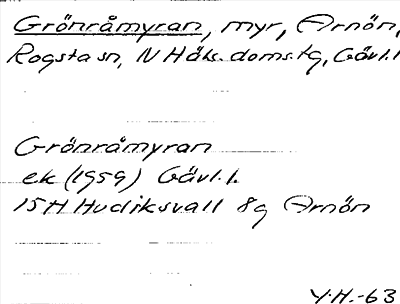 Grönråmyran, myr, Arnön,
Rogsta sn, N Häls. doms.tg, Gävl.l
Grönråmyran
ek (1959) Gävl.l.
15H Hudiksvall 8g Arnön
Y.H.-63